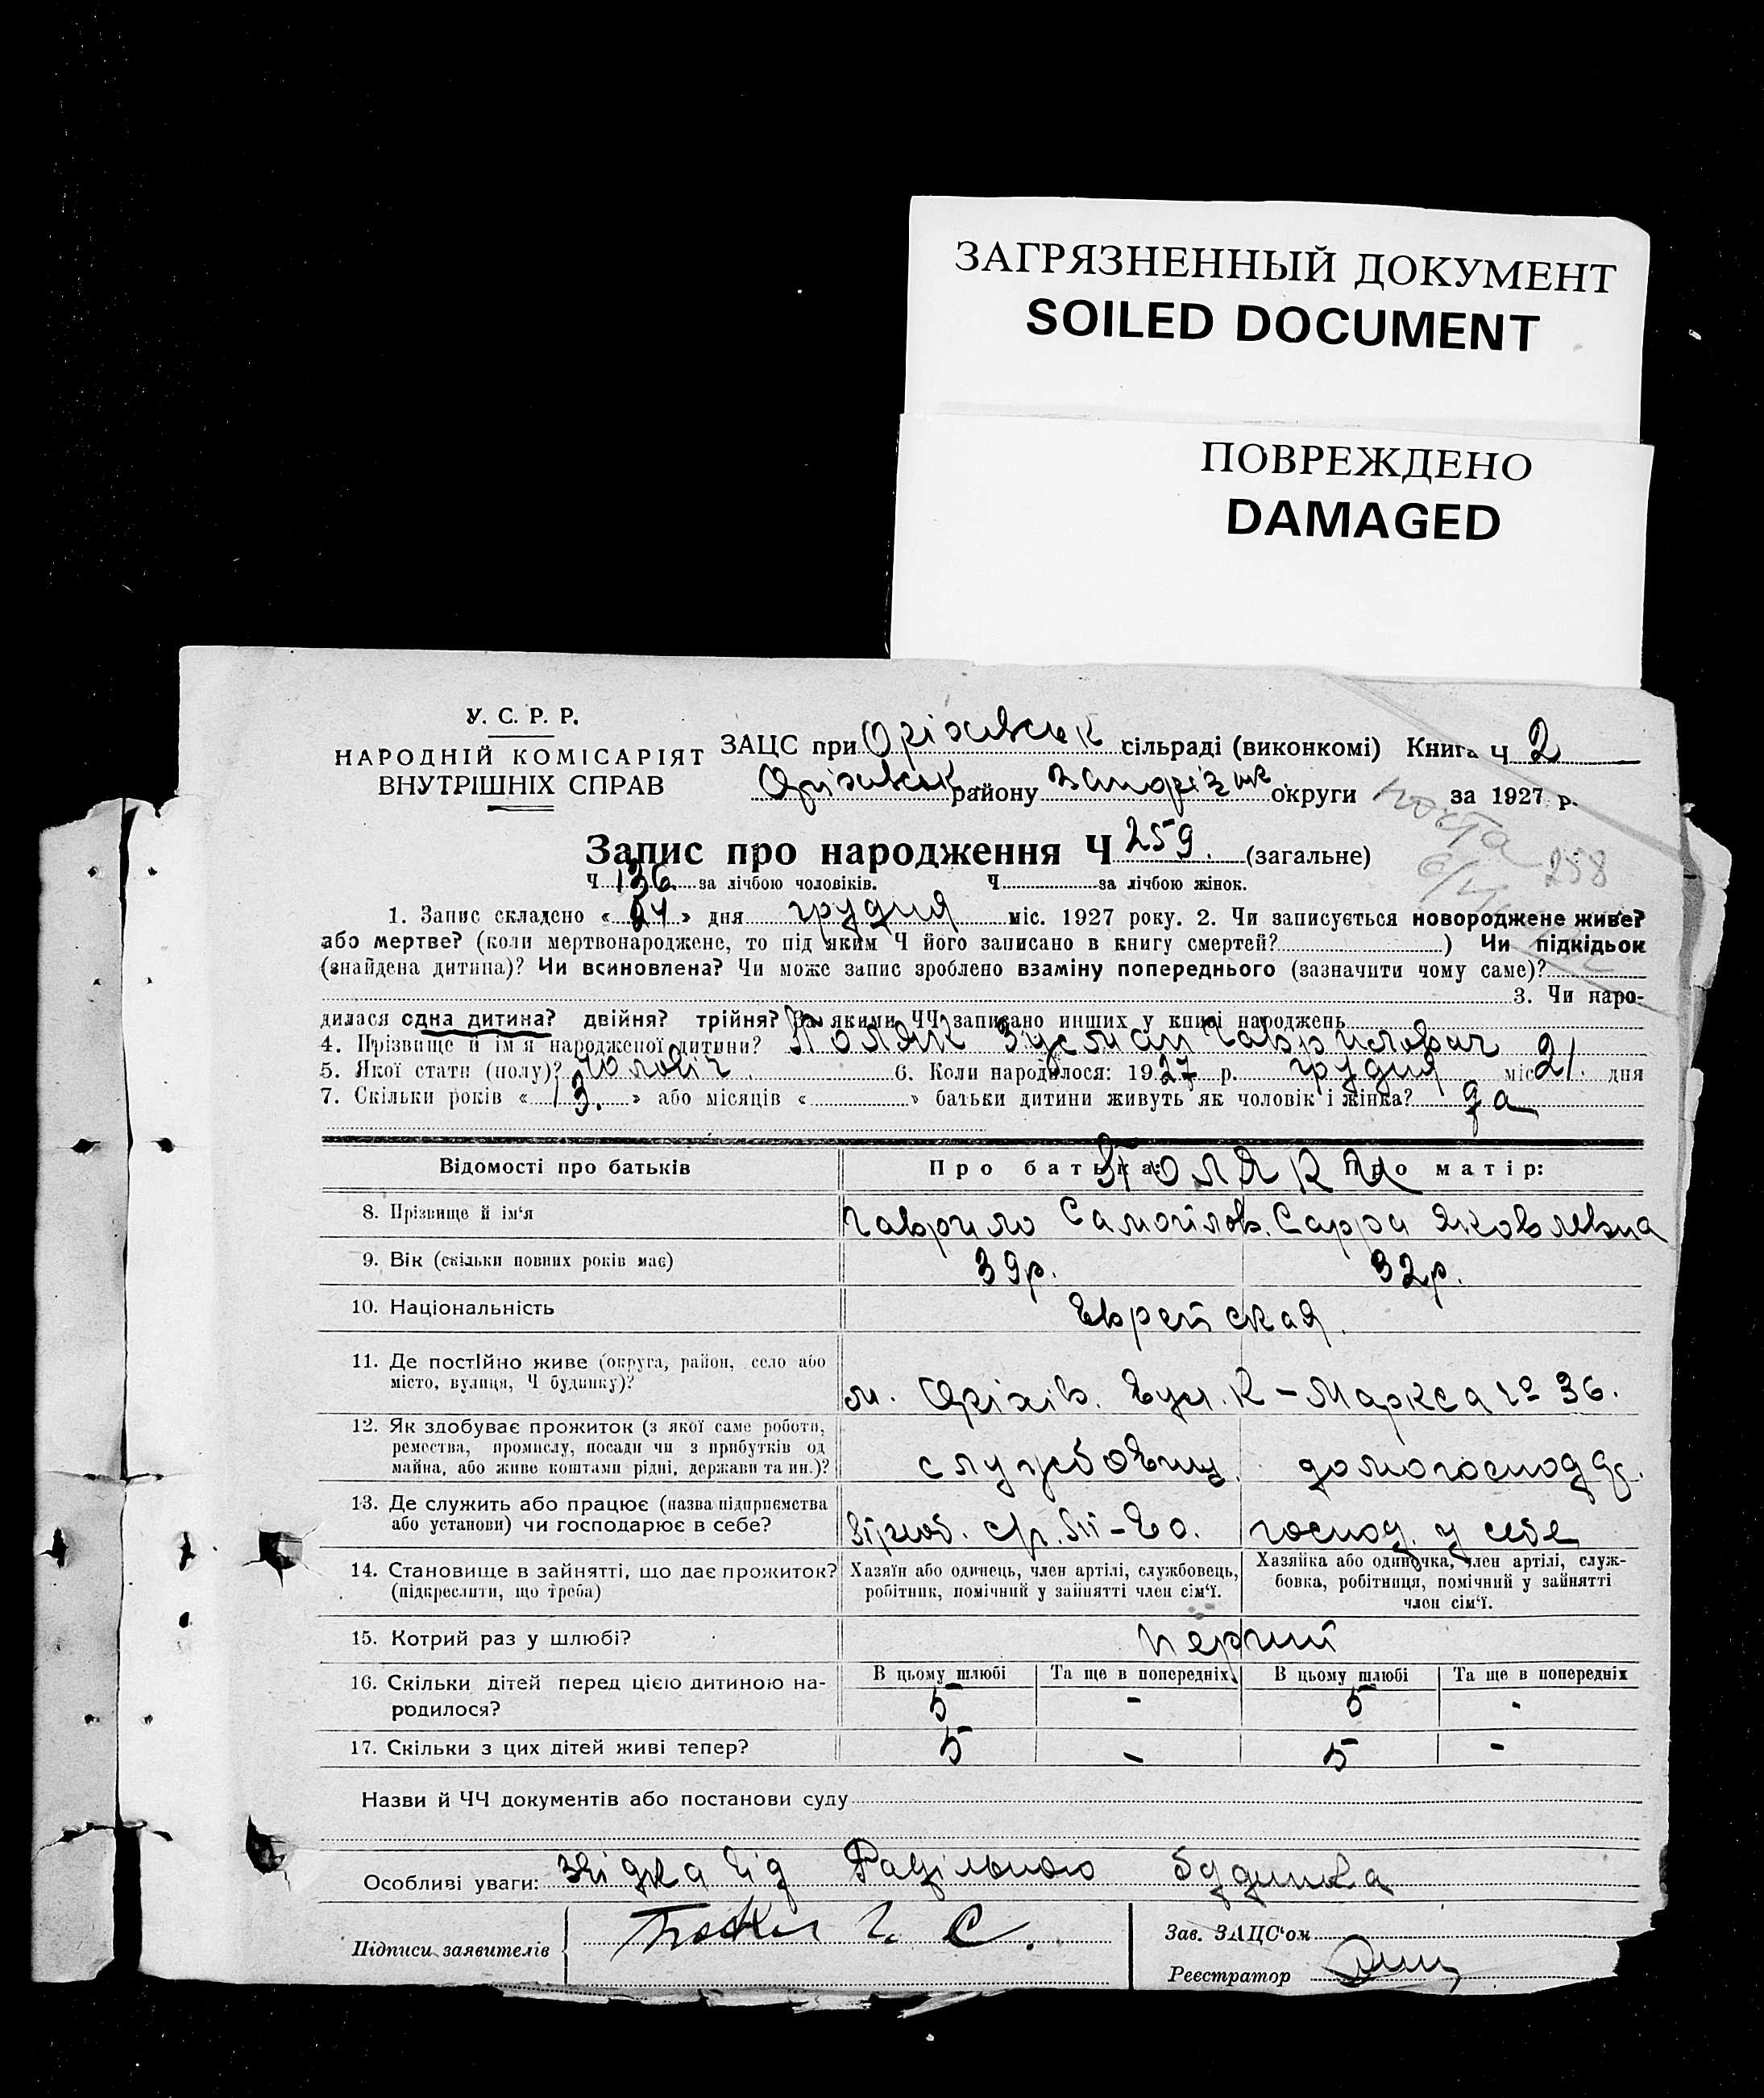 ЗАГРЯЗНЕННЫЙ ДОКУМЕНТ
SOILED DOCUMENT
ПОВРЕЖДЕНО
DAMAGED
У. С. Р. Р.
НАРОДНІЙ КОМІСАРІЯТ
ВНУТРІШНІХ СПРАВ
ЗАЦС при Оріхивськ сільраді (виконкомі) Книга Ч 2
Оріхивськ району Запоріз округи за 1927 р.
Запис про народження Ч 259. (загальне)
258
Ч 136 за лічбою чоловіків. Ч за лічбою жінок.
1. Запис складено « » дня грудня міс. 1927 року. 2. Чи записується новороджене живе?
або мертве? (коли мертвонароджене, то під яким Ч його записано в книгу смертей? ) Чи підкідьок
(знайдена дитина)? Чи всиновлена? Чи може запис зроблено взаміну попереднього (зазначити чому саме)?
3. Чи наро-
дилася одна дитина? двійня? трійня? За якими ЧЧ записано инших у книзі народжень
4. Прізвище й ім'я народженої дитини? Поляк Зусман Гаврилович
5. Якої стати (полу)? Чоловіч 6. Коли народилося: 1927 р. грудня міс 21 дня
7. Скільки років « 13. » або місяців « » батьки дитини живуть як чоловік і жінка? да
Відомості про батьків Про батька: Про матір:
Поляки
8. Прізвище й ім'я Гаврило Самойлов. Сарра Яковлевна
9. Вік (скільки повних років має) 39р. 32р.
10. Національність Еврейская.
11. Де постійно живе (округа, район, село або
місто, вулиця, Ч будинку)? м. Оріхів. вул. К-Маркса № 36.
12. Як здобуває прожиток (з якої саме роботи,
ремества, промислу, посади чи з прибутків од
майна, або живе коштами рідні, держави та ин.)? службовиц. домогоспод
13. Де служить або працює (назва підприємства
або установи) чи господарює в себе? господ. у себе
14. Становище в зайнятті, що дає прожиток?
(підкреслити, що треба)
Хазяїн або одинець, член артілі, службовець,
робітник, помічний у зайнятті член сім'ї.
Хазяйка або одиночка, член артілі, служ-
бовка, робітниця, помічний у зайнятті
член сім'ї.
15. Котрий раз у шлюбі? перший
16. Скільки дітей перед цією дитиною на-
родилося?
В цьому шлюбі Та ще в попередніх В цьому шлюбі Та ще в попередніх
5 - 5 -
17. Скільки з цих дітей живі тепер? 5 - 5 -
Назви й ЧЧ документів або постанови суду
Особливі уваги: звідка від Родільного будинка
Підписи заявителів Г. С.
Зав. ЗАЦС'ом
Реєстратор